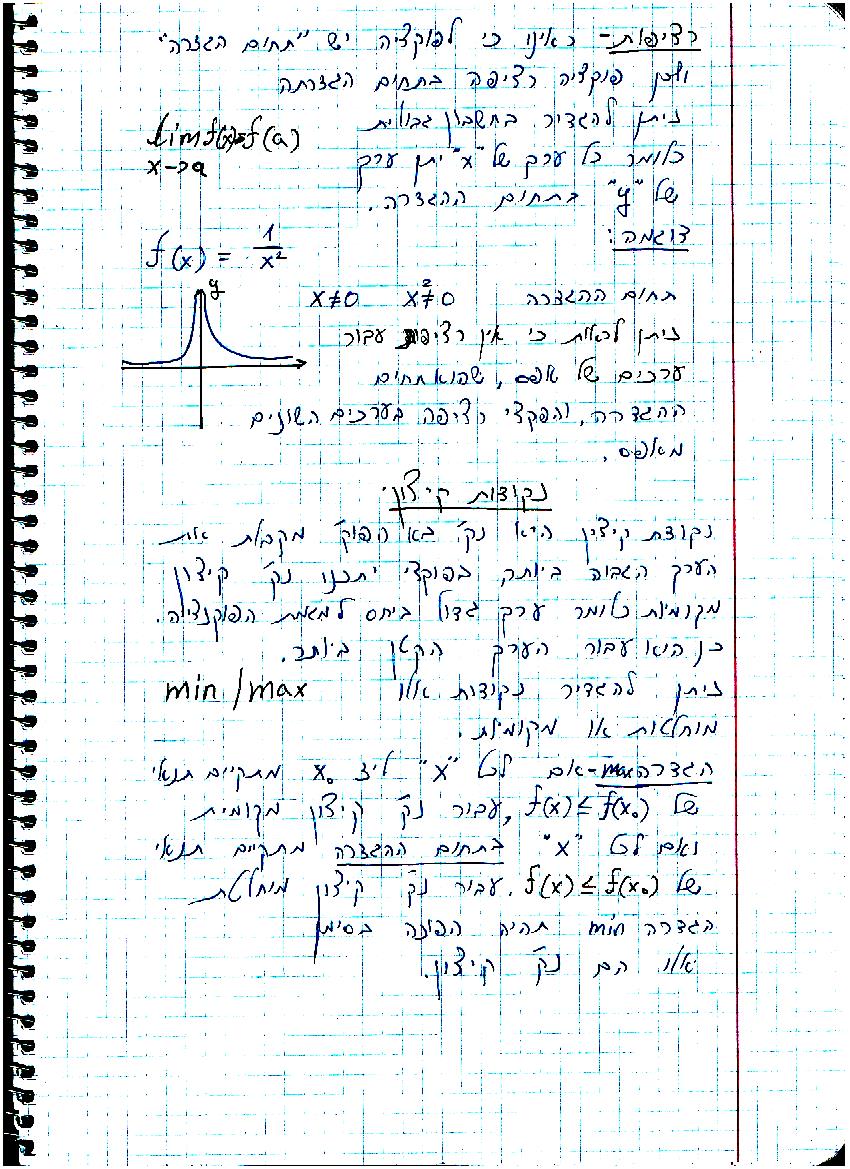 רציפות - ראינו כי לפוקציה יש "תחום הגדרה"
ולכן פוקציה רציפה בתחום הגדרתה
ניתן להגדיר בחשבון גבולית
lim f(x)=f(a)
x→a
כלומר כל ערך של "x" יתן ערך
של "y" בתחום ההגדרה.
דוגמה:
f(x) = 1/x²
y
תחום ההגדרה x²≠0 x≠0
ניתן לראות כי אין רציפות עבור
ערכים של אפס, שהוא תחום
ההגדרה, והפקצי רציפה בערכים השונים
מאפס.
נקודות קיצון.
נקודת קיצון היא נק' בא הפוק' מקבלת את
הערך הגבוה ביותר, בפוקצי יתכנו נק' קיצון
מקומיות כלומר ערך גדול ביחס למגמת הפוקנציה.
כן היא עבור הערך הקטן ביותר.
ניתן להגדיר נקודות אלו min/max
מוחלטות או מקומיות.
הגדרה max - אם לכל "x" ליד x₀ מתקיים תנאי
של f(x) ≤ f(x₀), עבור נק' קיצון מקומית
ואם לכל "x" בתחום ההגדרה מתקיים תנאי
של f(x) ≤ f(x₀). עבור נק' קיצון מוחלטת
הגדרה min תהיה הפוכה בסימן
אלו הם נק' קיצון.